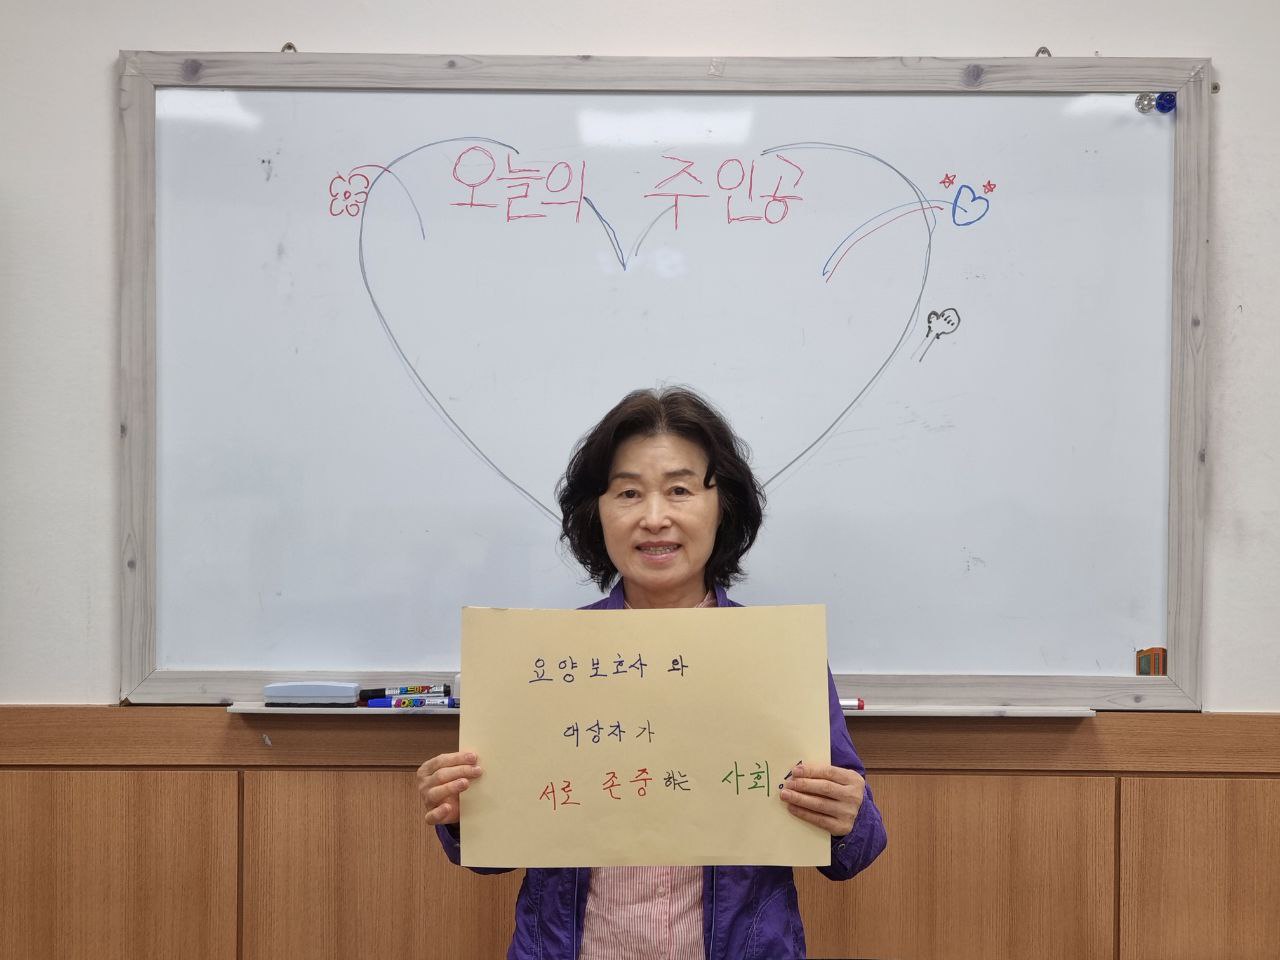 오늘의 주인공
요양보호사 와
대상자가
서로 존중하는 사회